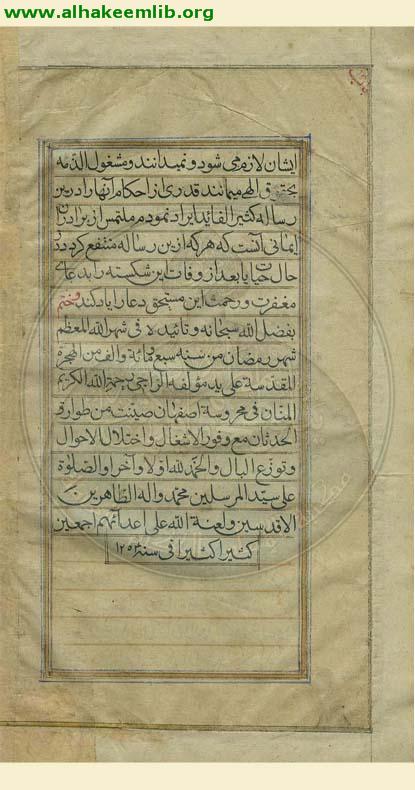 www.alhakeemlib.org
ایشان لازم می شود و نمیدانند و مشغول الذمه
بحقوق الهی میمانند قدری از احکام آنها را درین
رساله کثیر الفائده ایراد نمودم ملتمس از برادران
ایمانی آنست که هر که ازین رساله منتفع کردد در
حال حیات یا بعد از وفات این شکسته را بدعای
مغفرت و رحمت این مستحق دعا را یاد کند و ختم
بفضل الله سبحانه و تائیده فی شهر الله المعظم
شهر رمضان من سنه سبع ومائة والف من الهجرة
المقدسة علی ید مؤلفه الراجی رحمة الله الکریم
المنان فی محروسة اصفهان صینت من طوارق
الحدثان مع وفور الاشغال و اختلال الاحوال
و توزع البال والحمد لله اولا و آخرا والصلوة
علی سید المرسلین محمد واله الطاهرین
الاقدسین ولعنة الله علی اعدائهم اجمعین
کثیرا کثیرا فی سنة